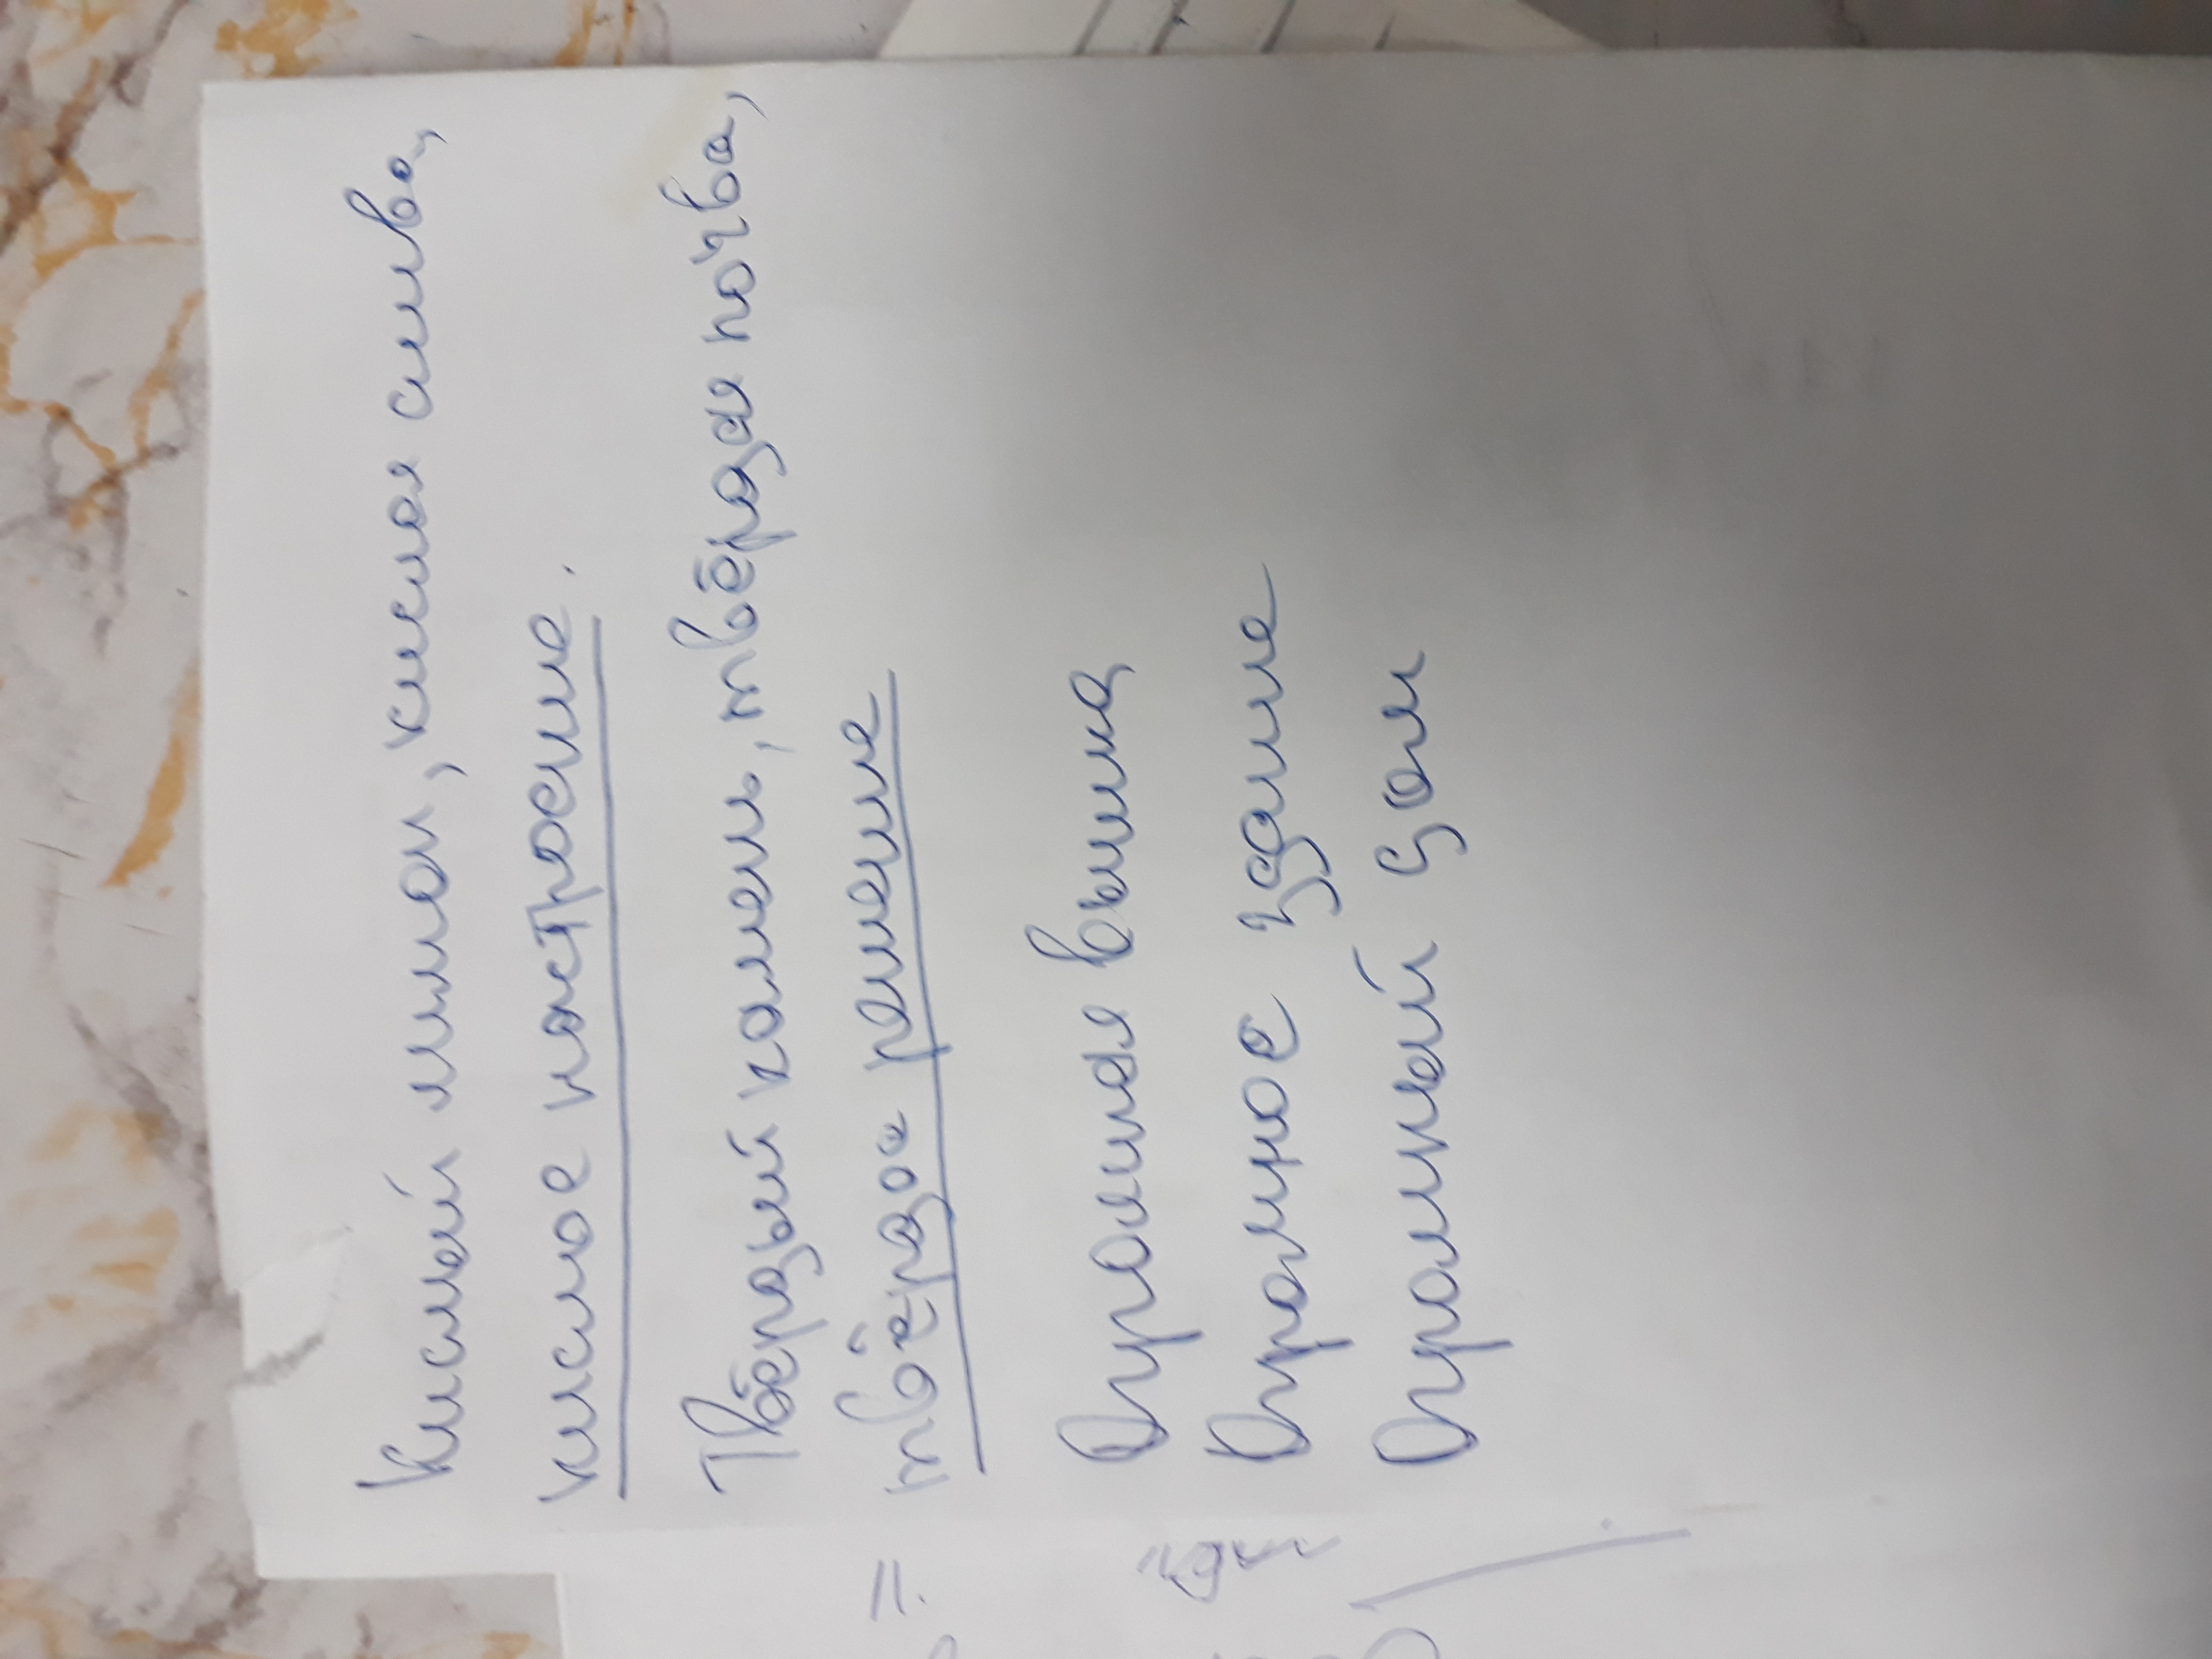 Кислый лимон, кислая слива,
кислое настроение.
Твёрдый камень, твёрдая почва,
твёрдое решение
Огромная вышка
Огромное здание
Огромный дом